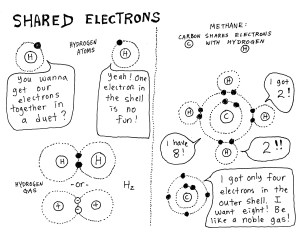 SHARED ELECTRONS
HYDROGEN
ATOMS
H
H
You wanna
get our
electrons
together in
a duet?
Yeah! One
electron in
the shell
is no
fun!
H
H
HYDROGEN
GAS
-or-
H₂
+
+
METHANE:
CARBON SHARES ELECTRONS
C
WITH HYDROGEN
H
H
I got
2!
H
C
H
I have
8!
H
2!!
C
I got only four
electrons in the
outer shell. I
want eight! Be
like a noble gas!